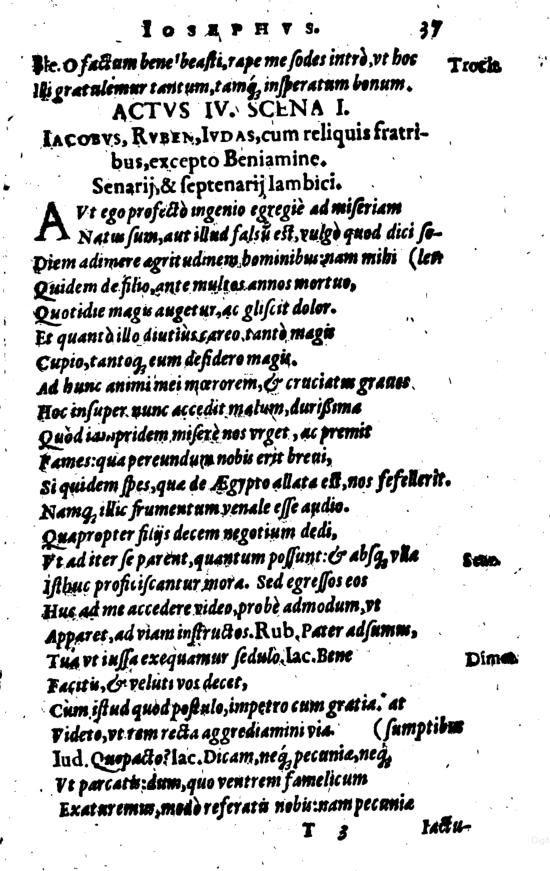 IOSEPHVS. 37
Ille. O factum bene! beasti, rape me sodes intrò, vt hoc Trocia
Illi gratulemur tantum, tamq́; insperatum bonum.
ACTVS IV. SCENA I.
IACOBVS, RVBEN, IVDAS, cum reliquis fratri-
bus, excepto Beniamine.
Senarij, & septenarij Iambici.
AVt ego profectò ingenio egregiè ad miseriam
Natus sum, aut illud falsũ est, vulgò quod dici so-
Diem adimere ægritudinem hominibus: nam mihi (len
Quidem de filio, ante multos annos mortuo,
Quotidie magis augetur, ac gliscit dolor.
Et quantò illo diutiùs careo, tantò magis
Cupio, tantoq́; eum desidero magis.
Ad hunc animi mei mœrorem, & cruciatus graues
Hoc insuper nunc accedit malum, durissima
Quòd iampridem miserè nos vrget, ac premit
Fames: qua pereundum nobis erit breui,
Si quidem spes, qua de Ægypto allata est, nos fefellerit.
Namq́; illic frumentum venale esse audio.
Quapropter filijs decem negotium dedi,
Vt ad iter se parent, quantum possunt: & absq́; vlla Sena.
Isthuc proficiscantur mora. Sed egressos eos
Huc ad me accedere video, probè admodum, vt
Apparet, ad viam instructos. Rub. Pater adsumus,
Tua vt iussa exequamur sedulo. Iac. Bene Dime
Facitis, & veluti vos decet,
Cum istud quod postulo, impetro cum gratia. at
Videte, vt rem recta aggrediamini via. (sumptibus
Iud. Quo pacto? Iac. Dicam, neq́; pecunia, neq́;
Vt parcatis: dum, quo ventrem famelicum
Exaturemus, modò referatis nobis: nam pecunia
T 3 Iactu-